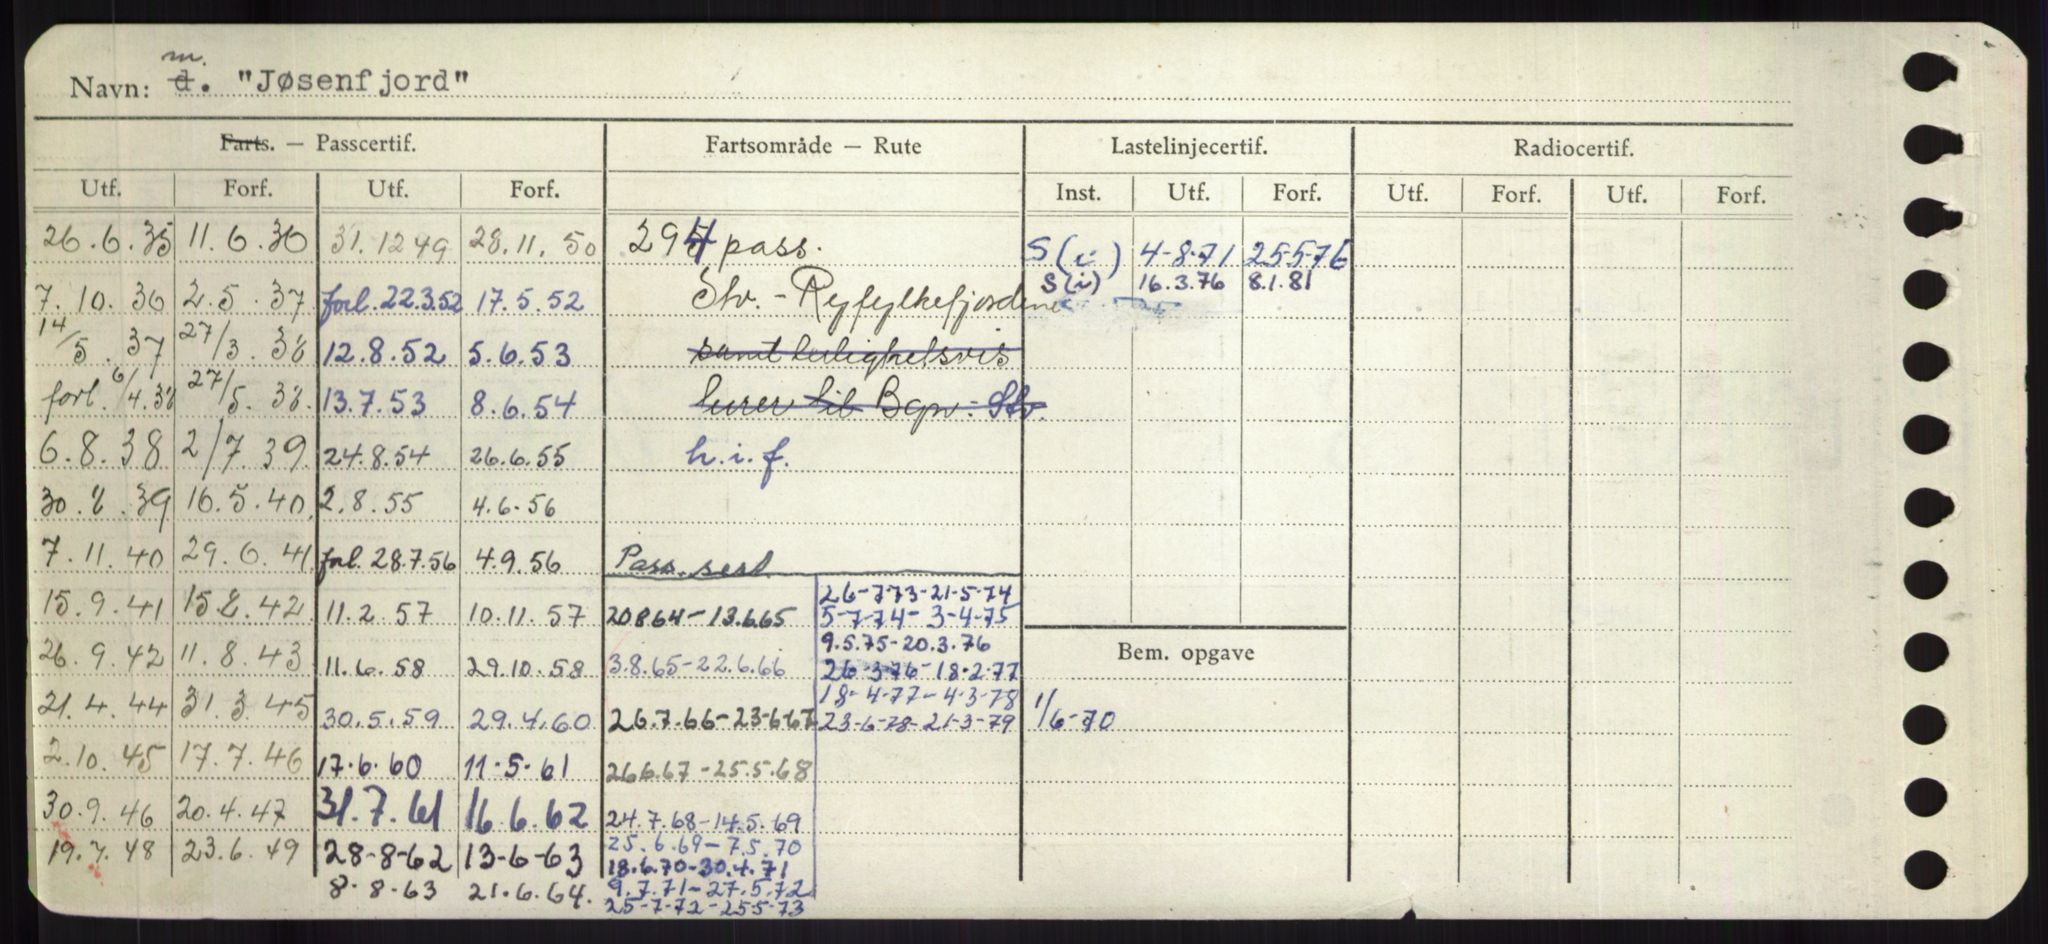 m.
Navn: d. "Jøsenfjord"
Farts. — Passcertif. Fartsområde — Rute Lastelinjecertif. Radiocertif.
Utf. Forf. Utf. Forf. Inst. Utf. Forf. Utf. Forf. Utf. Forf.
26.6.35 11.6.36 31.12 49 28.11.50 294 pass. S(i) 4-8-71 25-5-76
7.10.36 2.5.37 forl. 22.3.52 17.5.52 Stv. - Ryfylkefjordene S(i) 16.3.76 8.1.81
14/5.37 27/3.38 12.8.52 5.6.53 samt leilighetsvis
forl. 6/4.38 27/5.38 13.7.53 8.6.54 turer til Bgn - Stv.
6.8.38 2/7.39 24.8.54 26.6.55 h.i.f.
30.8.39 16.5.40 2.8.55 4.6.56
7.11.40 29.6.41 forl. 28.7.56 4.9.56 Pass. sert.
26-7-73-21-5-74
15.9.41 15.8.42 11.2.57 10.11.57 20864-13.6.65 5-7-74-3-4-75
9.5.75-20.3.76
Bem. opgave
26.9.42 11.8.43 11.6.58 29.10.58 3.8.65-22.6.66 26-3-76-18-2-77
18-4-77-4-3-78
21.4.44 31.3.45 30.5.59 29.4.60 26.7.66-23-6-67 23-6-78-21-3-79 1/6-70
2.10.45 17.7.46 17.6.60 11.5.61 26.6.67-25.5.68
30.9.46 20.4.47 31.7.61 16.6.62 24.7.68-14.5.69
25.6.69-7.5.70
19.7.48 23.6.49 28-8-62 13-6-63 18.6.70-30.4.71
8.8.63 21.6.64. 9.7.71-27.5.72
25-7-72-25-5-73